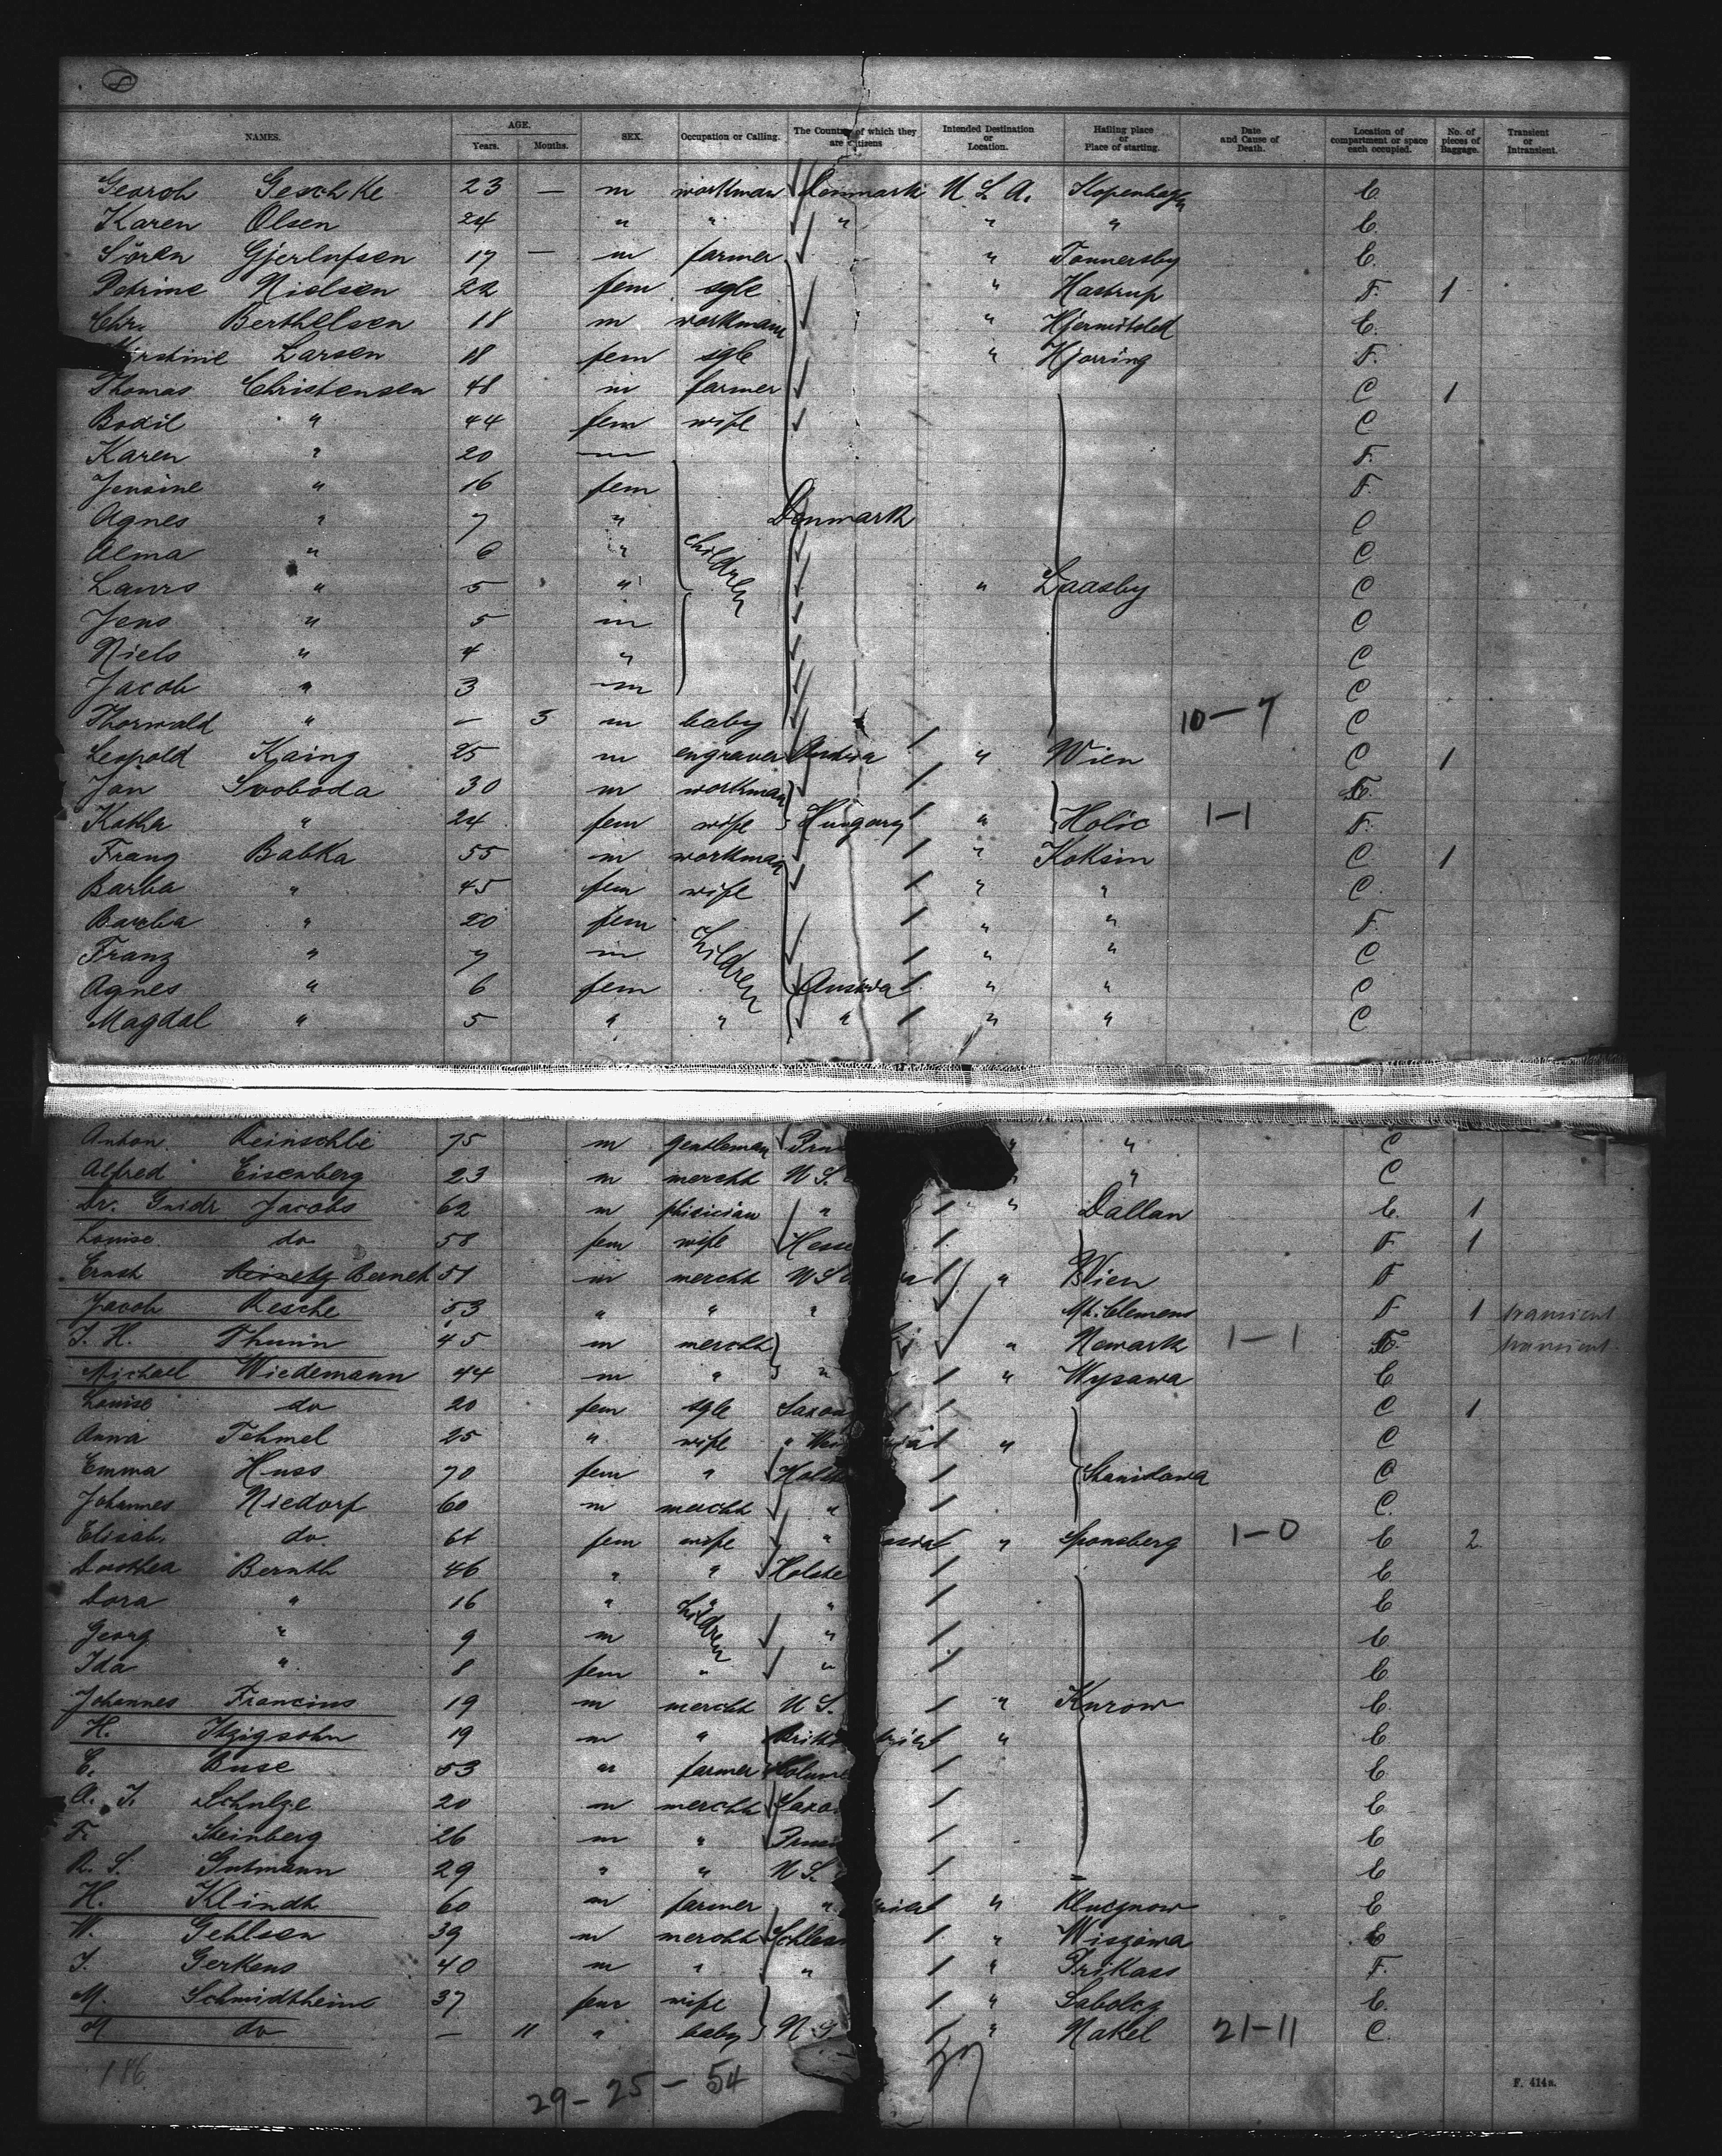 8
NAMES. AGE. Years. Months. SEX. Occupation or Calling. The Country of which they are citizens Intended Destination or Location. Hailing place or Place of starting. Date and Cause of Death. Location of compartment or space each occupied. No. of pieces of Baggage. Transient or Intransient.
Georch Geschke 23 — m workman Denmark U. S. A. Kopenhagen C.
Karen Olsen 24 " " " " " C.
Sören Gjerlufsen 17 — m farmer " Tonnersby C.
Petrine Nielsen 22 fem sgle " Hastrup F. 1
Chr. Berthelsen 18 m workmann " Hjermitsled C.
Larsen 18 fem sgle " Hjorring F.
Thomas Christensen 48 m farmer C 1
Bodil " 44 fem wife C
Karen " 20 — F.
Jensine " 16 fem F.
Agnes " 7 " Denmark C
Alma " 6 " children C
Laurs " 5 " " Laasby C
Jens " 5 m C
Niels " 4 " C
Jacob " 3 m C
Thorwald " — 3 m baby 10-7 C
Leopold Kaing 25 m engraver Austria " Wien C 1
Jan Svoboda 30 m workman
Katha " 24 fem wife Hungary " Holic 1-1 F.
Franz Babka 55 m workman " Koksin C 1
Barba " 45 fem wife " " C.
Barba " 20 fem " " F.
Franz " 7 m children " " C
Agnes " 6 fem Austria " " C
Magdal " 5 " " " " " C
Anton Reinschlie 75 m gentleman " " C
Alfred Eisenberg 23 m mercht U S. " C
Dr. Guido Jacobs 62 m phisician " " Dallan C. 1
Louise do 58 fem wife Hesse F. 1
Ernst Bernet 51 m mercht U S " Wien F
Jacob Resche 53 " " " Mt. Clemens F 1 transient
J. H. Thumm 45 m mercht " Newark 1-1 transient.
Michael Wiedemann 44 m " " " Wysawa C
Louise do 20 fem sgle C 1
Anna Tehmel 25 " wife " " C
Emma Huss 70 fem " Stanislawa C
Johannes Niedorf 60 m mercht " C.
Elisab. do. 61 fem wife " " Sponsberg 1-0 C 2
Dorothea Bernth 46 " " Holste C
Dora " 16 " " " C
Georg " 9 m children " C.
Ida " 8 fem " " C
Johannes Francius 19 m mercht U S. " Kurow C.
H. Itzigsohn 19 m " " C
C. Buse 53 m farmer C
A. J. Schulze 20 m mercht C
F. Steinberg 26 m " C
R. S. Gutmann 29 " " U S. C
H. Klindt 60 m farmer " " C
W. Gehlsen 39 m mercht " Wiszowa C
J. Gerkens 40 m " " " Prikass F.
M. Schmidtheim 37 fem wife " Sabolcz C.
M do. — 11 " baby " Nakel 21-11 C.
186
29-25-54
F. 414a.